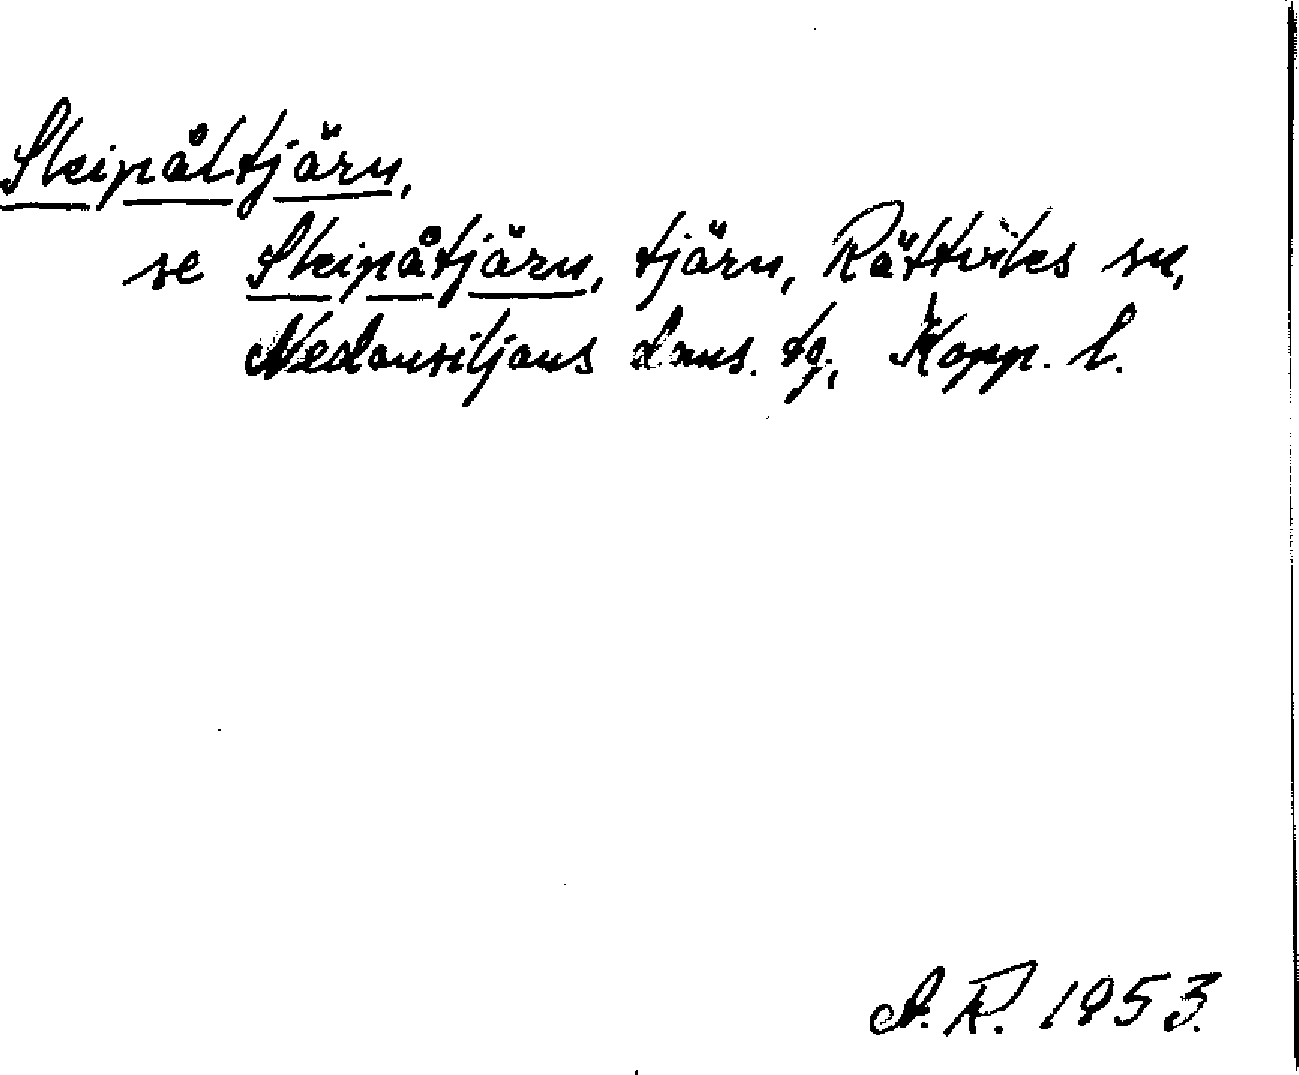 Skipåltjärn,
se Skipåtjärn, tjärn, Rättviks sn,
Nedansiljans doms. tg, Kopp. l.
A.R. 1953.